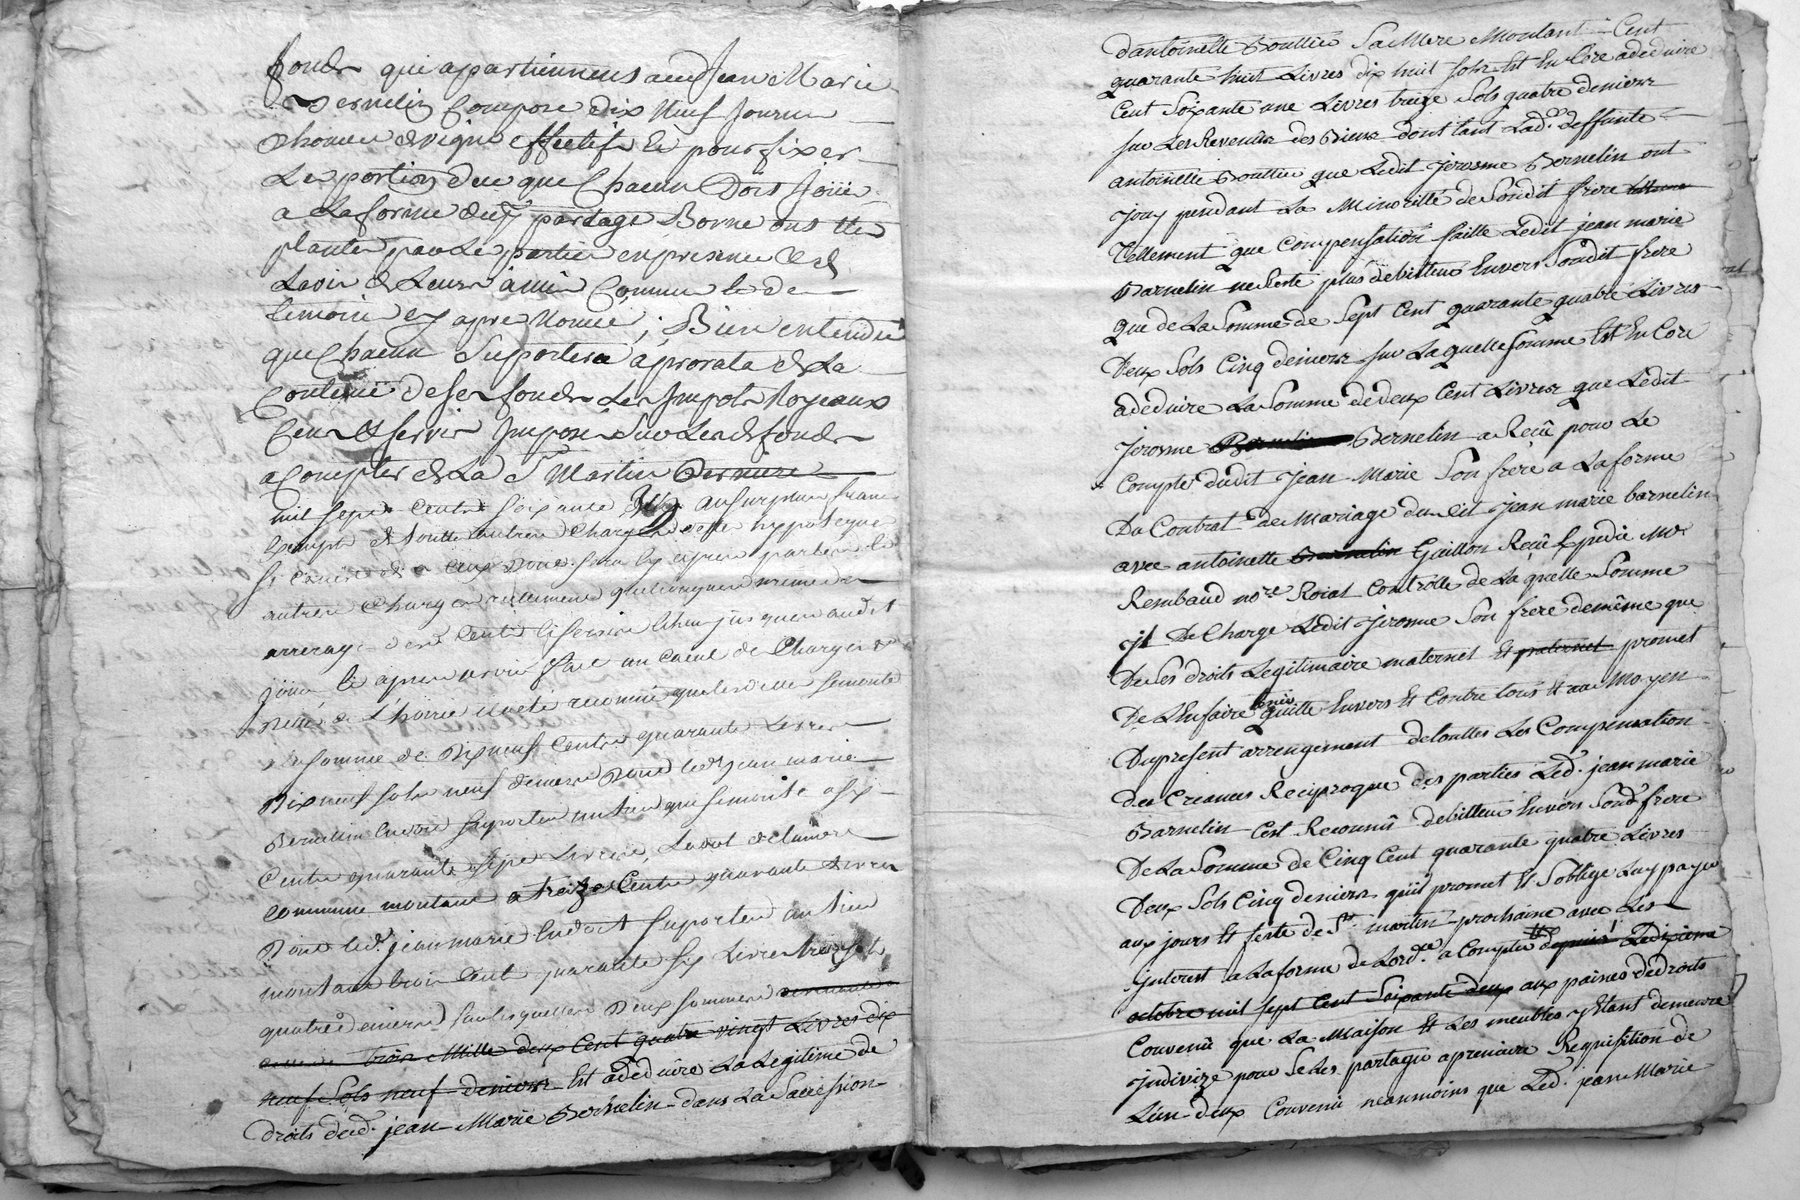 fonds qui appartiennens aud Jean Marie
Bernelin Compose dix Neuf Journe
dhomee de vigne effectif Et pour fixer
La portion due que Chacun Dois Jouir
a La forme dud partage Borne ons ete
plantes par Les parties en presence et de
Lavis de Leurs amis Comme le de
temoins cy apres Nomee ; Bien entendu
que Chacun Suportera a prorata de La
Contenue de ses fonds Les Impots Royeaux
Cens et servis Imposes Sur Lesd fonds
a Compter de La St Martin derniere
mil sept Cents soixante au surplus franc
Exempt de toutte autres Charges dette hypoteque
autres Charges generalement quelconques meme des
arrerages des Cents et servis jusques audit
jour, Et apres avoir fait un Calcul de Charges
la somme de Dix neuf Cents quarante Livres
Dix neuf sols neuf deniers Dont led jean marie
Bernelin En doit suporter un tiers qui se monte a six
Cents quarante sept Livres,
commune montant a treize Cents quarante Livres
Dont led. jean marie En doit suporter un tiers
montant trois Cent quarante six Livres treize sols
quatre deniers sur lesquelles Deux sommes
trois Mille deux Cent quatre vingt Livres dix
neuf Sols neuf deniers Est adeduire La Legitime de
droits dud. jean Marie Bernelin dans La Succession
dantoinette Bouttier Sa Mere Montant Cent
quarante huit Livres dix huit sols Est En Core adeduire
Cent Soixante une Livres treize Sols quatre deniers
sur Les Revenus des Biens dont tant Lad. deffunte
antoinette Bouttier que Ledit jerosme Bernelin ont
jouy pendant La Minorité de Sondit frere
Tellement que Compensation faitte Ledit jean marie
Barnelin ne Reste plus debitteur Envers Sondit frere
que de La Somme de Sept Cent quarante quatre Livres
Deux Sols Cinq deniers sur Laquelle somme Est En Core
adeduire La Somme de deux Cent Livres que Ledit
jerosme Bernelin Bernelin a Reçu pour Le
Compte dudit jean Marie Son frere a La forme
Du Contrat de Mariage dudit jean marie barnelin
avec antoinette Barnelin Gaillon Reçu Expedie Me
Rembaud nore Roial Controlle de Laquelle Somme
jl De Charge Ledit jerosme Son frere de même que
De Ses droits Legitimaire maternel Et paternel promet
De L'Enfaire tenir quitte Envers Et Contre tous Et au Moyen
Du present arrengement de touttes Les Compensation
des Creances Reciproque des parties Led. jean marie
Barnelin C'est Reconnu debitteur Envers Sond frere
De La Somme de Cinq Cent quarante quatre Livres
Deux Sols Cinq deniers qu'il promet Et S'oblige Luy payer
aux jours Et feste de St martin prochaine avec Les
jnterest a La forme de Lordce a Compter depuis Le dixieme
octobre mil sept Cent Soixante deux aux paines de droits
Convenu que La Maison Et Les meubles restant demeure
jndivize pour Se Les partager a premiere Requisition de
L'un deux Convenu neanmoins que Led. jean Marie